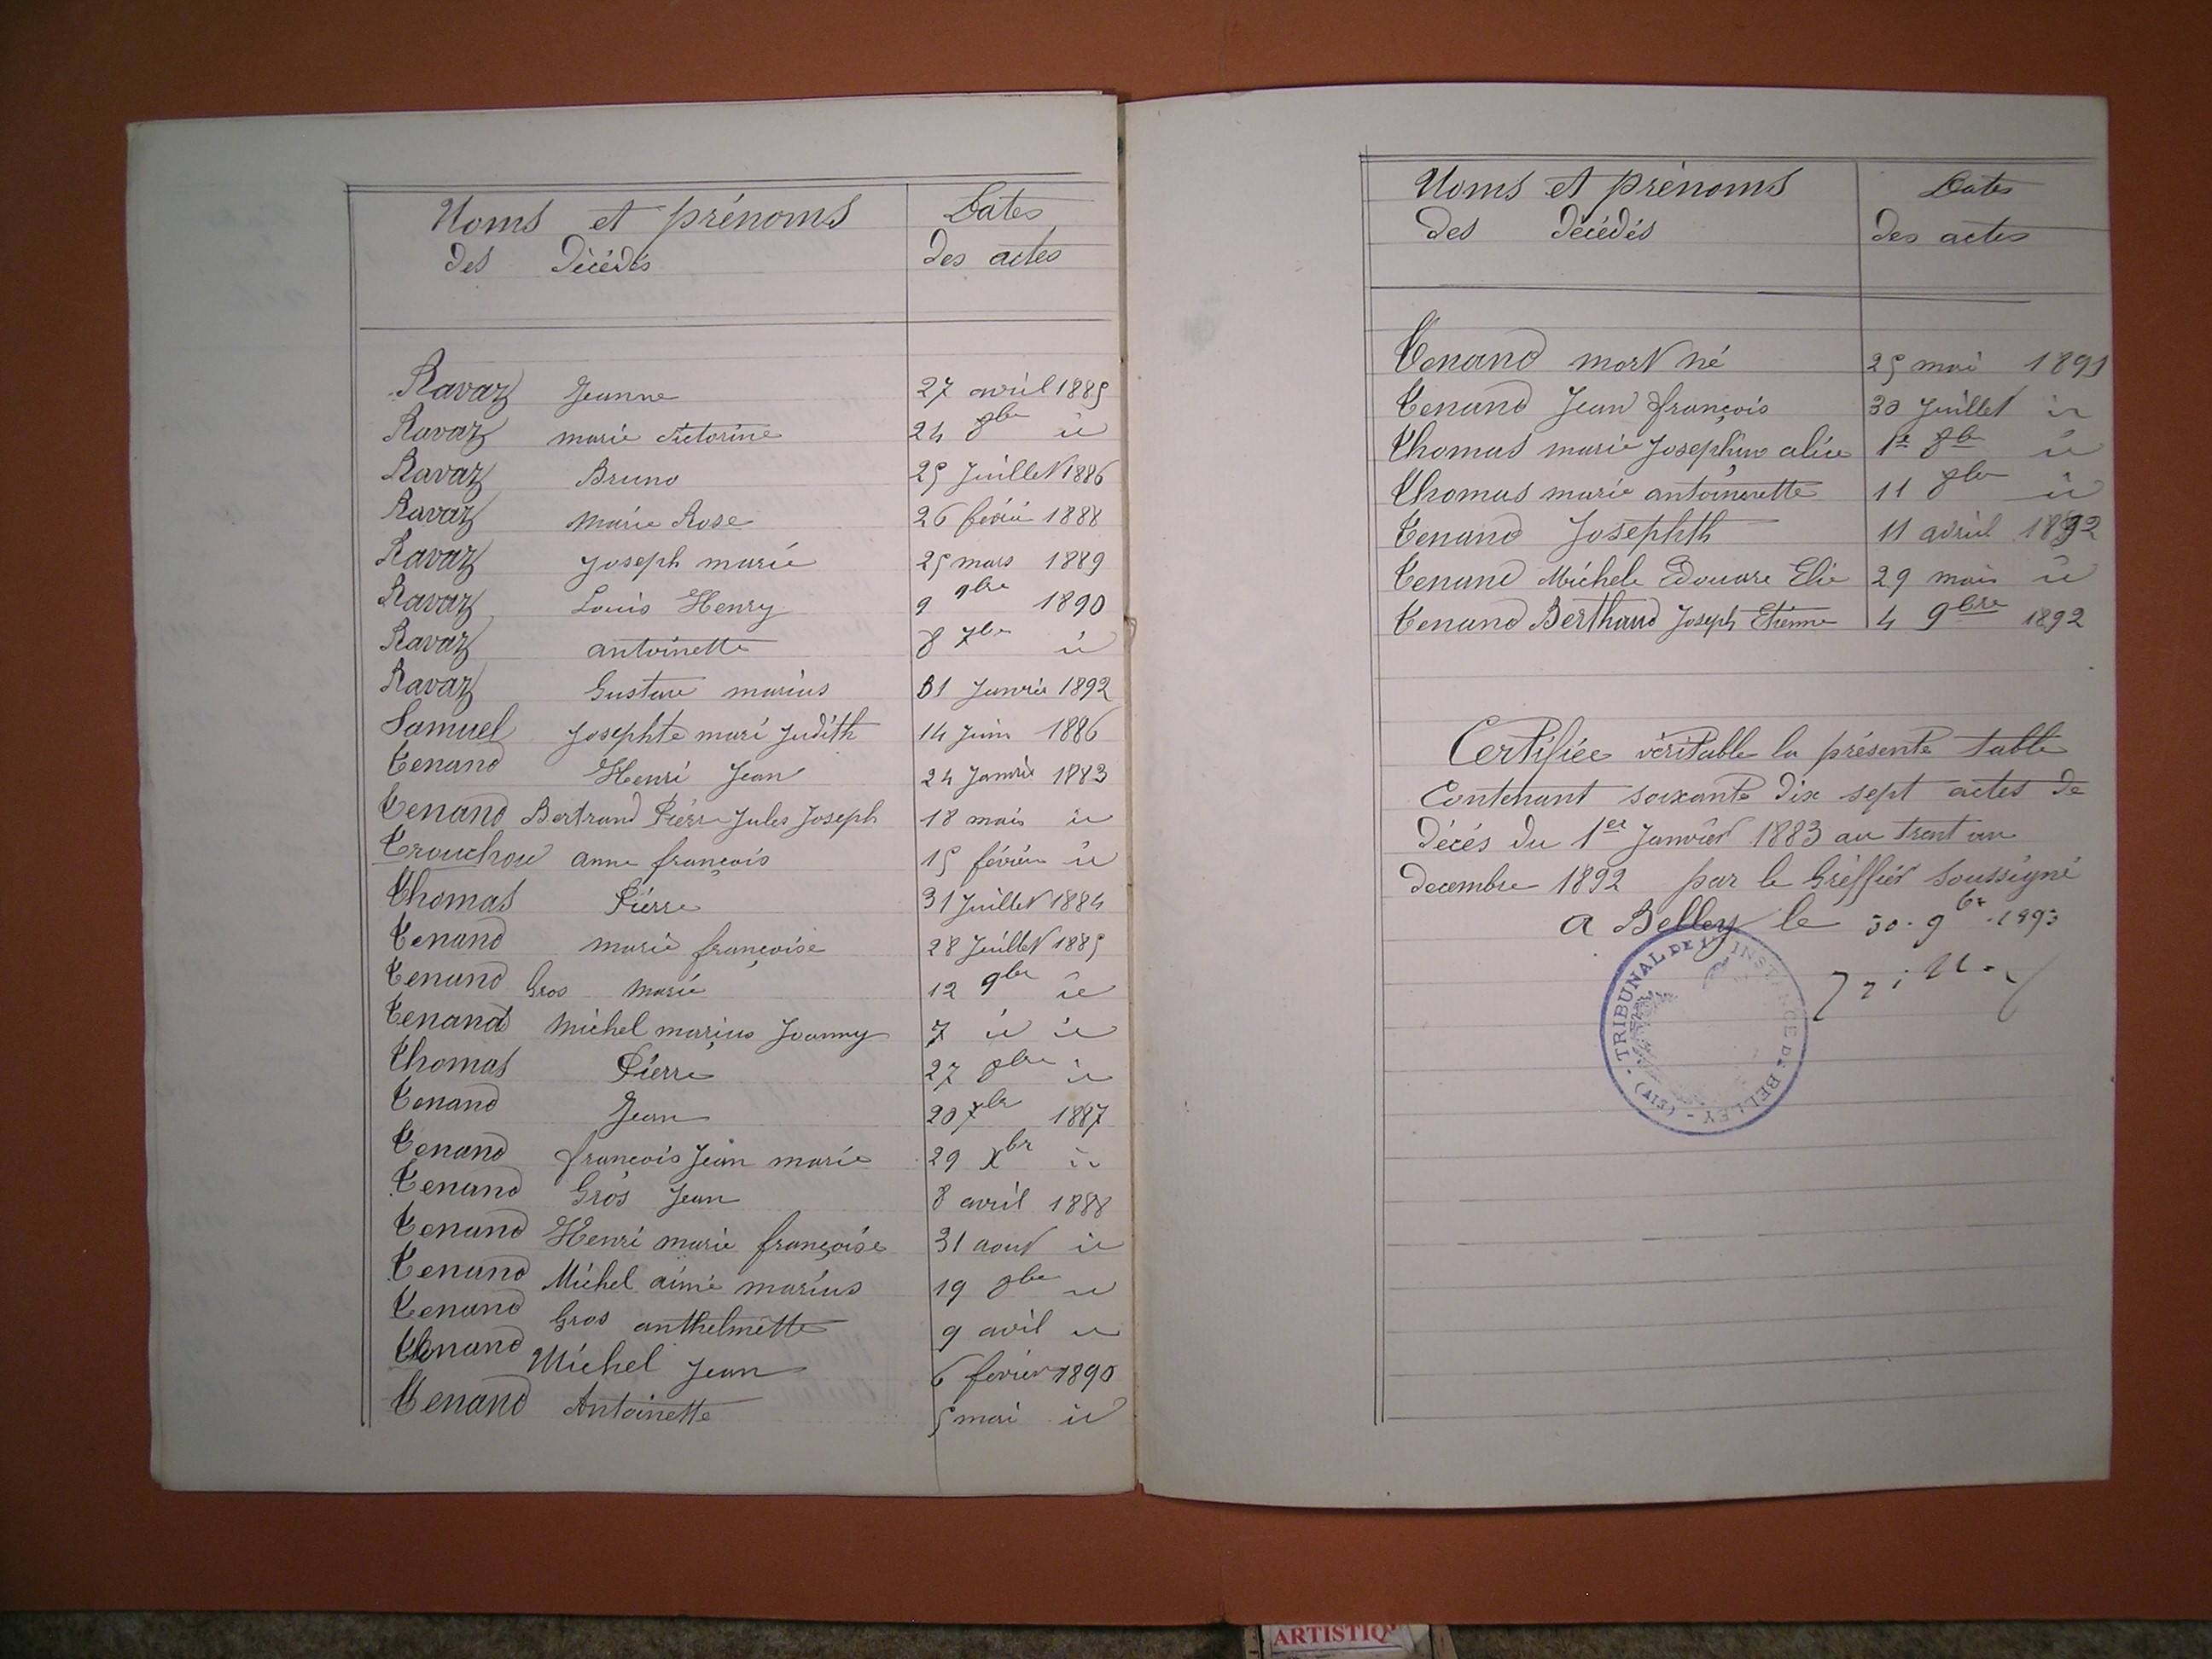 Noms et prénoms
des décédés
Dates
des actes
Ravaz Jeanne 27 avril 1885
Ravaz marie Victorine 24 8bre id
Ravaz Bruno 25 Juillet 1886
Ravaz Marie Rose 26 février 1888
Ravaz Joseph marie 25 mars 1889
Ravaz Louis Henry 9 9bre 1890
Ravaz antoinette 8 7bre id
Ravaz Gustave marius 31 Janvier 1892
Samuel Josephte mari Judith 14 Juin 1886
Tenand Henri Jean 24 Janvier 1883
Tenand Bertrand Pierre Jules Joseph 18 mais id
Trouchou anne françois 15 février id
Thomas Pierre 31 Juillet 1884
Tenand marie françoise 28 Juillet 1885
Tenand Gros Marie 12 9bre id
Tenand Michel marius Joanny 7 id id
Thomas Pierre 27 8bre id
Tenand Jean 20 7bre 1887
Tenand françois Jean marie 29 Xbr id
Tenand Gros Jean 8 avril 1888
Tenand Henri marie françoise 31 aout id
Tenand Michel aimé marius 19 8bre id
Tenand Gros anthelmette 9 avil id
Tenand Michel Jean 6 février 1890
Tenand Antoinette 5 mai id
Noms et prénoms
des décédés
Dates
des actes
Tenand mort né 25 mai 1891
Tenand Jean françois 30 Juillet id
Thomas marie Josephine alice 1er 8bre id
Thomas marie antoinette 11 8bre id
Tenand Josephth 11 avril 1892
Tenand Michel Edouare Elie 29 mais id
Tenand Berthaud Joseph Etienne 4 9bre 1892
Certifiée véritable la présente table
Contenant soixante dix sept actes de
décés du 1er Janvier 1883 au trent un
decembre 1892 par le Greffier soussigné
a Belley le 30 . 9br . 1893
TRIBUNAL DE 1re INSTANCE DE BELLEY - (AIN) -
ARTISTIQ